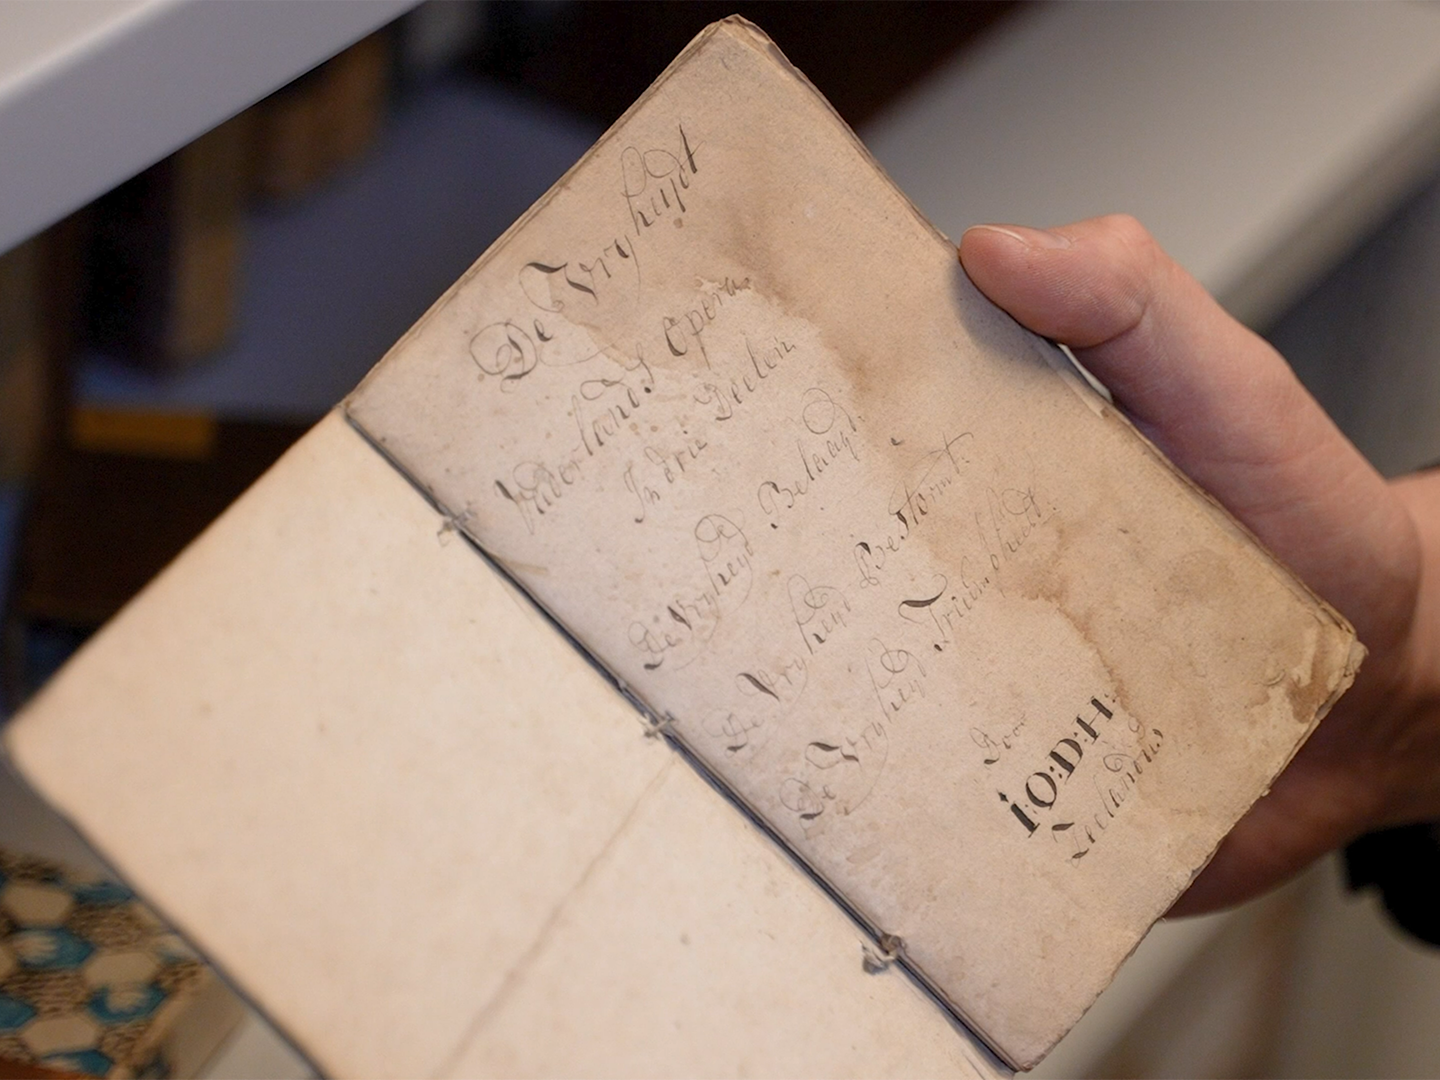 De Vryheydt
Vaderlands Opera
In drie Deelen.
De Vryheyd Belaagt.
De Vryheyd Bestormt.
De Vryheyd Triumpheert.
Door
I:O:D:H:
Zeelandois